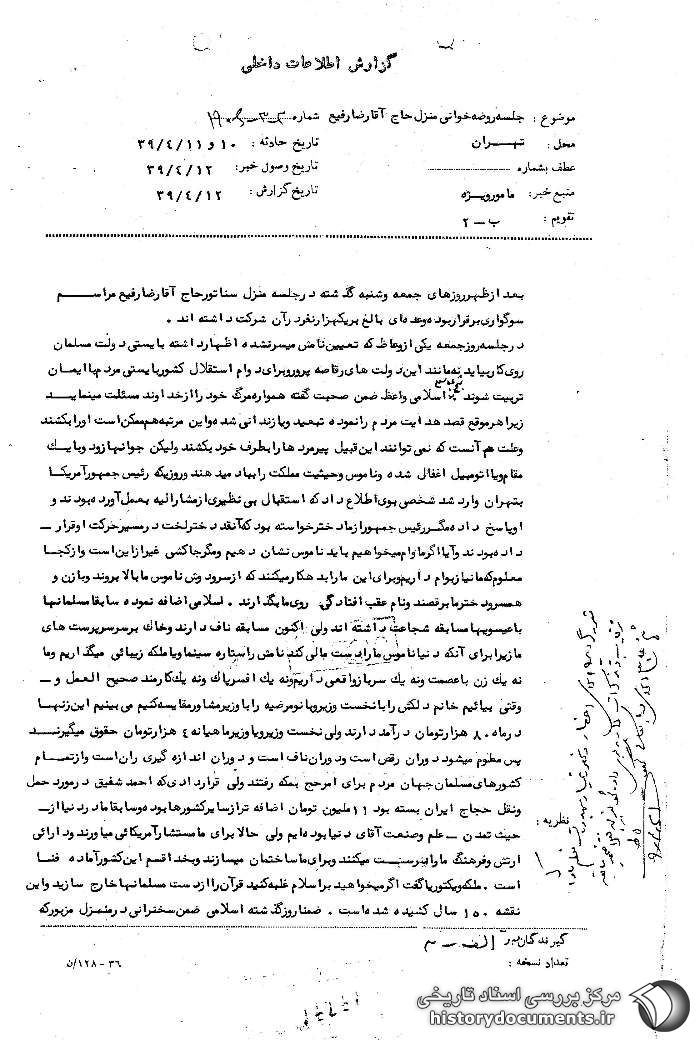 گزارش اطلاعات داخلی
موضوع : جلسه روضه خوانی منزل حاج آقا رضا رفیع شماره
محل : تهران
تاریخ حادثه : ۱۰ و ۳۹/٤/۱۱
عطف بشماره
تاریخ وصول خبر: ۳۹/٤/۱۲
منبع خبر: مامور ویژه
تاریخ گزارش : ۳۹/٤/۱۲
تقویم : ب – ۲
بعد از ظهر روزهای جمعه و شنبه گذشته در جلسه منزل سناتور حاج آقا رضا رفیع مراسم
سوگواری برقرار بوده و عده ای بالغ بریکهزار نفر در آن شرکت داشته اند .
در جلسه روز جمعه یکی از وعاظ که تعیین نامش میسر نشده اظهار داشته بایستی دولت مسلمان
روی کار بیاید نه مانند این دولت های رقاصه پرور و برای دوام استقلال کشور بایستی مردم با ایمان
تربیت شوند اسلامی واعظ ضمن صحبت گفته همواره مرگ خود را از خداوند مسئلت مینماید
زیرا هر موقع قصد هدایت مردم را نموده تبعید و یا زندانی شده و این مرتبه هم ممکن است او را بکشند
وعلت هم آنست که نمی توانند این قبیل پیرمرد ها را بطرف خود بکشند ولیکن جوانها زود و با یك
مقام و یا اتومبیل اغفال شده و ناموس و حیثیت مملکت را بباد میدهند و روزیکه رئیس جمهور آمریکا
بتهران وارد شد شخصی بوی اطلاع داد که استقبال بی نظیری از مشارالیه بعمل آورده بودند و
او پاسخ داده مگر رئیس جمهور از ما دختر خواسته بود که آنقدر دختر لخت در مسیر حرکت او قرار –
داده بودند و آیا اگر ما وام میخواهیم باید ناموس نشان دهیم و مگر جاکشی غیر از این است و از کجا
معلوم که ما نیاز بوام داریم و برای این ما را بدهکار میکنند که از سر و دوش ناموس ما بالا بروند و با زن و
همسر و دختر ما برقصند و نام عقب افتادگی روی ما بگذارند . اسلامی اضافه نموده سابقا مسلمانها
با عیسویها مسابقه شجاعت داشته اند ولی اکنون مسابقه ناف دارند و خاك بر سر سرپرست های
ما زیرا برای آنکه دنیا ناموس ما را دست مالی کند نامش را ستاره سینما و یا ملکه زیبائی میگذاریم و ما
نه یك زن با عصمت و نه یك سرباز واقعی داریم و نه یك افسر پاك و نه یك کارمند صحیح العمل و –
وقتی بیائیم خانم دلکش را با نخست وزیر و بانو مرضیه را با وزیر مشاور مقایسه کنیم می بینیم این زنها
در ماه ۸۰ هزار تومان درآمد دارند ولی نخست وزیر و یا وزیر ماهیانه ٤ هزار تومان حقوق میگیرند
پس معلوم میشود دوران رقص است و دوران ناف است و دوران اندازه گیری ران است و از تمام
کشورهای مسلمان جهان مردم برای امر حج بمکه رفتند ولی قراردادی که احمد شفیق در مورد حمل
و نقل حجاج ایران بسته بود ۱۱ ملیون تومان اضافه تر از سایر کشورها بوده و سابقا ما در دنیا از –
حیث تمدن – علم و صنعت آقای دنیا بوده ایم ولی حالا برای ما مستشار آمریکائی میآورند و ارائی
ارتش و فرهنگ ما را سرپرست میکنند و برای ما ساختمان میسازند و بخدا قسم این کشور آماده فنا
است . ملکه ویکتوریا گفت اگر میخواهید بر اسلام غلبه کنید قرآن را از دست مسلمانها خارج سازید و این
نقشه ۱۵۰ سال کشیده شده است . ضمنا روز گذشته اسلامی ضمن سخنرانی در منزل مزبور که
نظریه :
گیرندگان
تعداد نسخه :
۳۶ – ۱۲۸/ن
مرکز بررسی اسناد تاریخی
historydocuments.ir